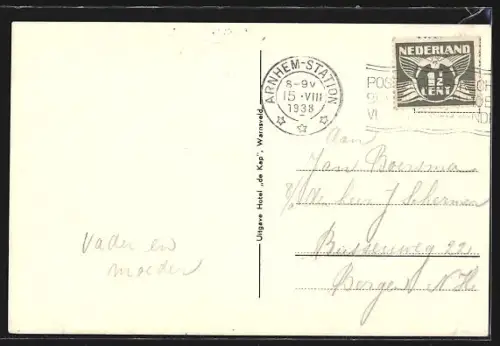 NEDERLAND
1½
CENT
ARNHEM-STATION
8-9V
15·VIII
1938
POS
VI
Uitgave Hotel „de Kap", Warnsveld
Aan
Jan Boersma
p/a den heer J Schermer
Bussenweg 22
Bergen N.H.
Vader en
moeder